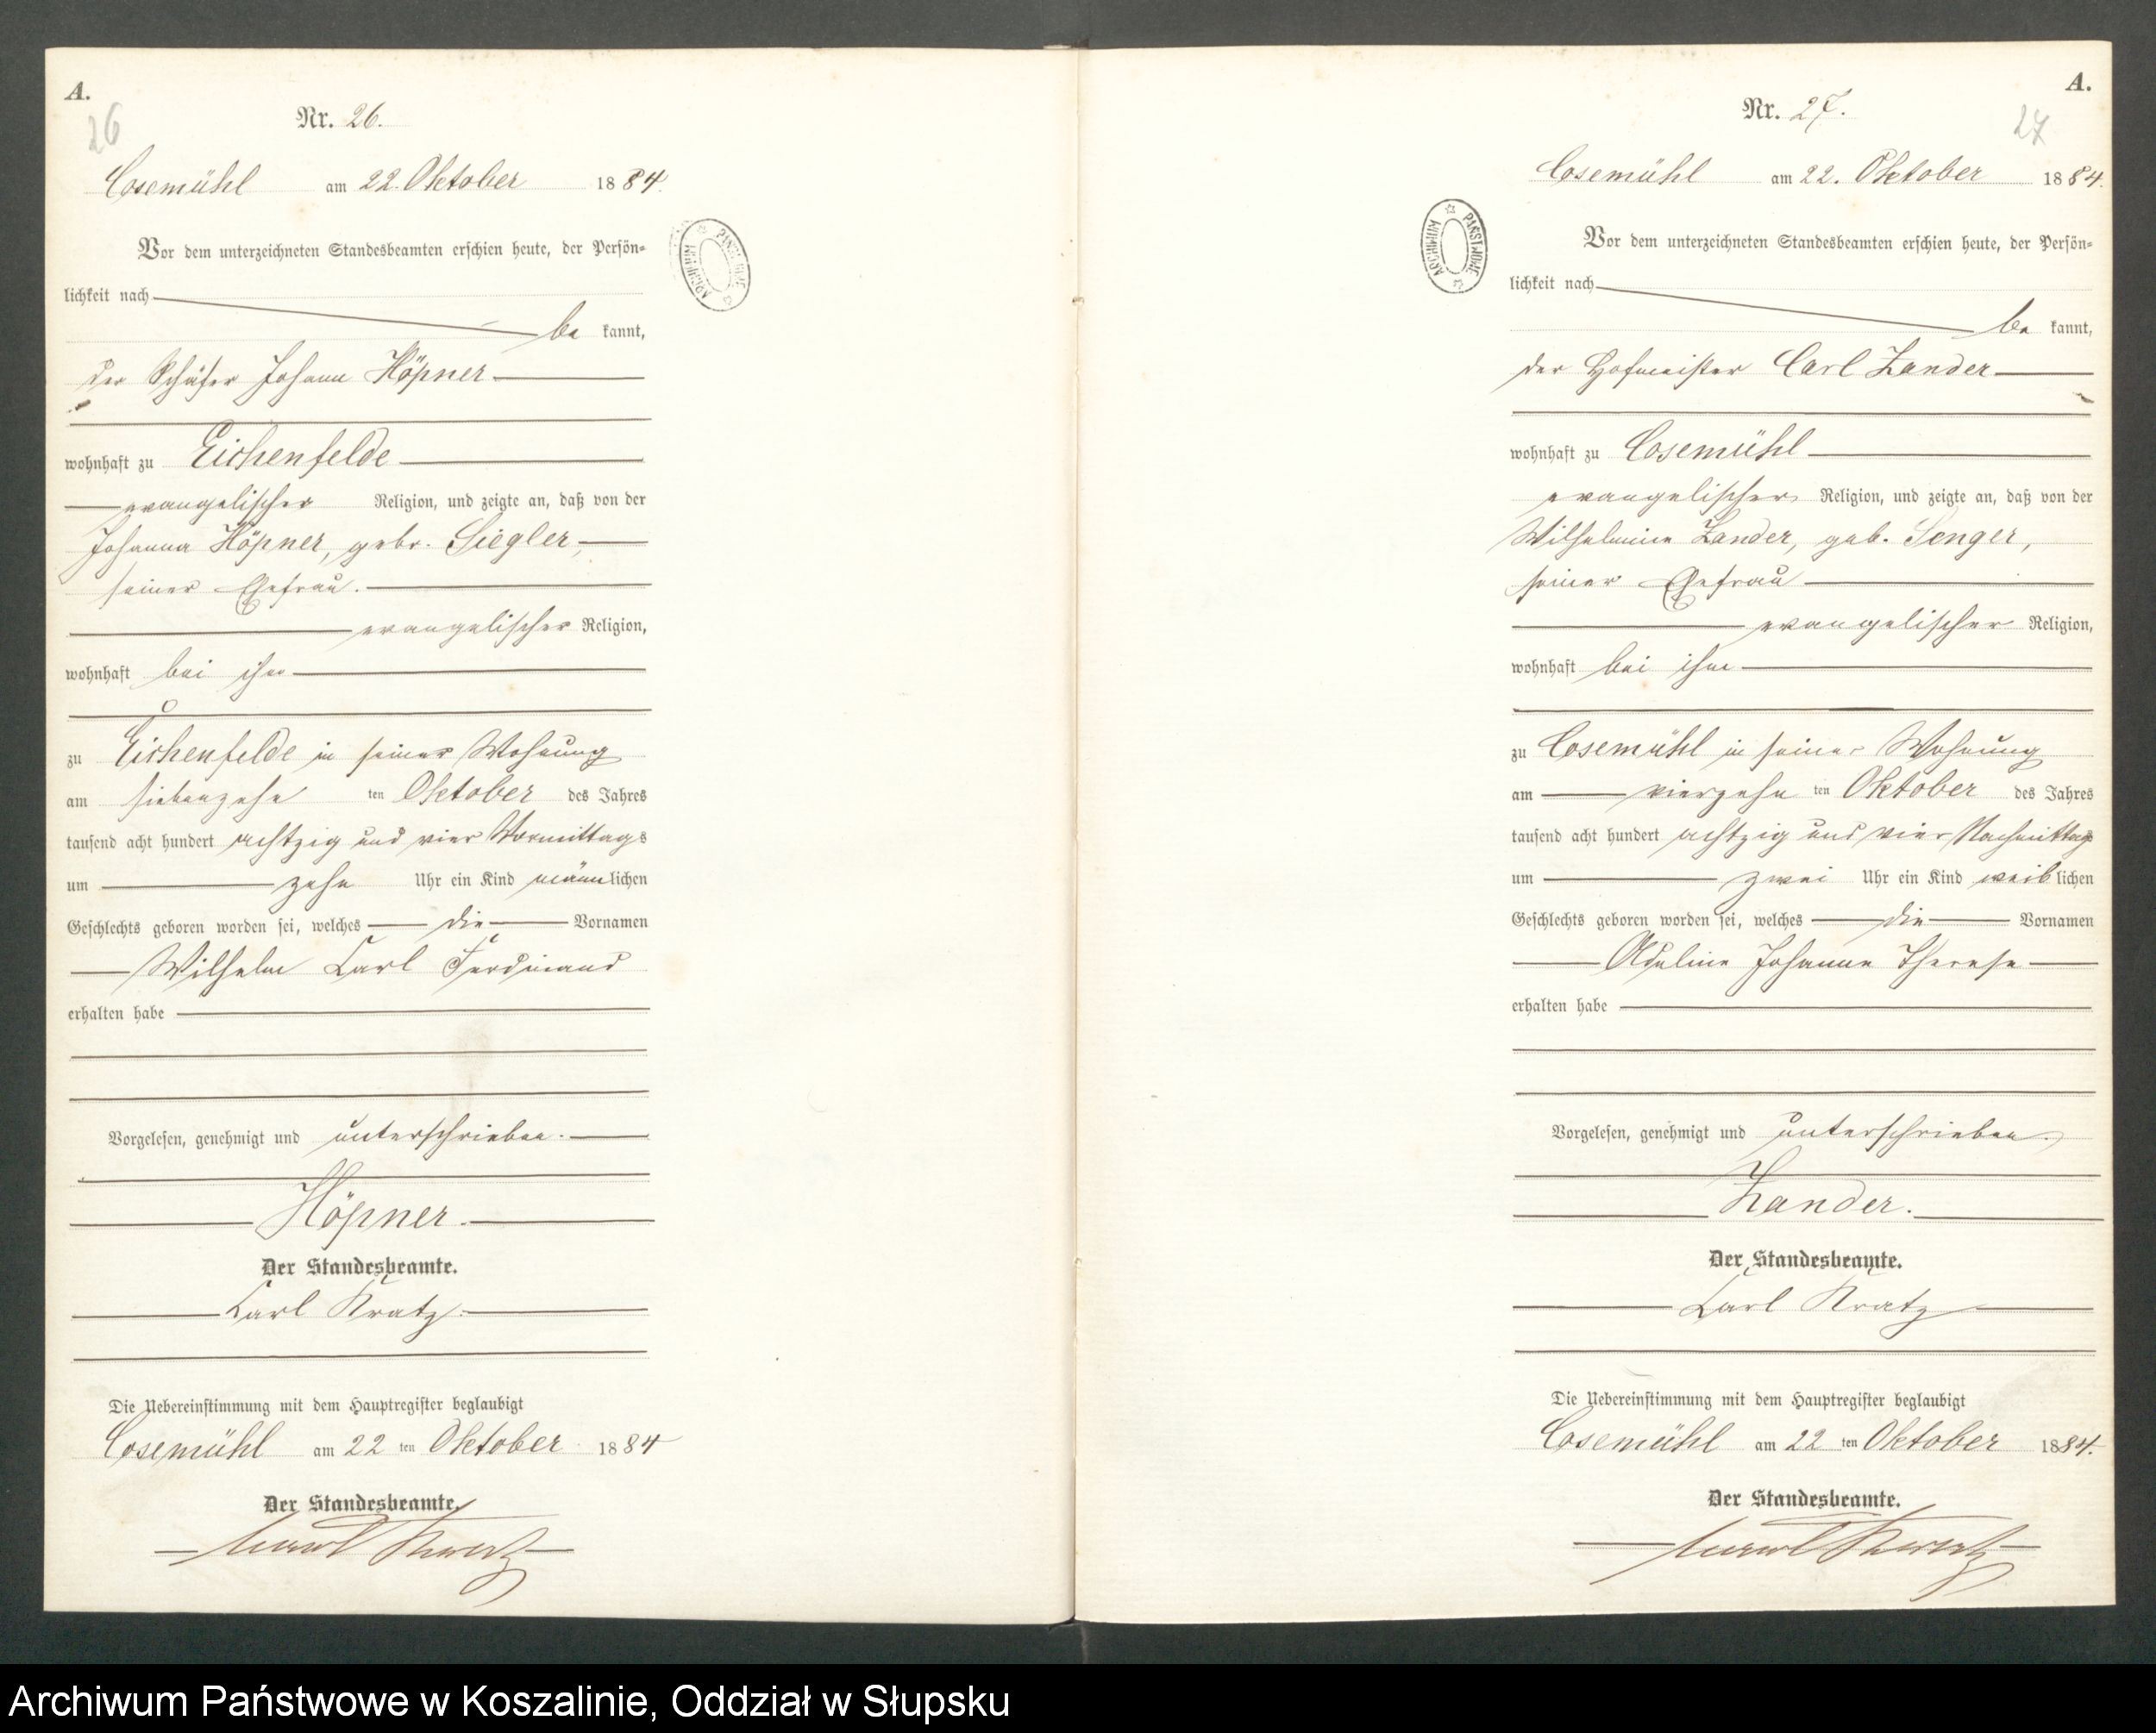 A.
26
Nr. 26.
Cosemühl am 22. Oktober 1884.
Vor dem unterzeichneten Standesbeamten erschien heute, der Persön-
lichkeit nach
be kannt,
der Schäfer Johann Höpner
wohnhaft zu Eichenfelde
evangelischer Religion, und zeigte an, daß von der
Johanna Höpner, gebr. Siegler,
seiner Ehefrau.
evangelischer Religion,
wohnhaft bei ihm
zu Eichenfelde in seiner Wohnung
am siebenzehn ten Oktober des Jahres
tausend acht hundert achtzig und vier Vormittags
um zehn Uhr ein Kind männlichen
Geschlechts geboren worden sei, welches die Vornamen
Wilhelm Carl Ferdinand
erhalten habe
Vorgelesen, genehmigt und unterschrieben.
Höpner.
Der Standesbeamte.
Carl Kratz.
Die Uebereinstimmung mit dem Hauptregister beglaubigt
Cosemühl am 22 ten Oktober 1884
Der Standesbeamte.
Carl Kratz
ARCHIWUM PAŃSTWOWE
A.
27
Nr. 27.
Cosemühl am 22. Oktober 1884.
Vor dem unterzeichneten Standesbeamten erschien heute, der Persön-
lichkeit nach
be kannt,
der Hofmeister Carl Zander
wohnhaft zu Cosemühl
evangelischer Religion, und zeigte an, daß von der
Wilhelmine Zander, geb. Senger,
seiner Ehefrau
evangelischer Religion,
wohnhaft bei ihm
zu Cosemühl in seiner Wohnung
am vierzehn ten Oktober des Jahres
tausend acht hundert achtzig und vier Nachmittags
um zwei Uhr ein Kind weiblichen
Geschlechts geboren worden sei, welches die Vornamen
Adeline Johanne Therese
erhalten habe
Vorgelesen, genehmigt und unterschrieben.
Zander.
Der Standesbeamte.
Carl Kratz
Die Uebereinstimmung mit dem Hauptregister beglaubigt
Cosemühl am 22 ten Oktober 1884.
Der Standesbeamte.
Carl Kratz
ARCHIWUM PAŃSTWOWE
Archiwum Państwowe w Koszalinie, Oddział w Słupsku